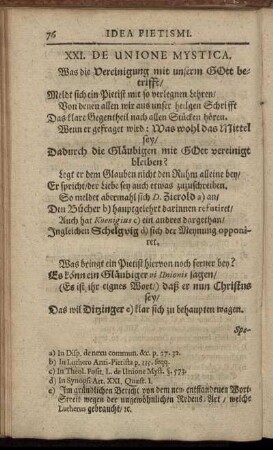 76 IDEA PIETISMI.
XXI. DE UNIONE MYSTICA.
Was die Vereinigung mit unserm GOtt be-
trifft/
Meldt sich ein Pietist mit so verlegnen Lehren/
Von denen allen wir aus unser heilgen Schrifft
Das klare Gegentheil nach allen Stücken hören.
Wenn er gefraget wird: Was wohl das Mittel
sey/
Dadurch die Gläubigen mit GOtt vereinigt
bleiben?
Legt er dem Glauben nicht den Ruhm alleine bey/
Er spricht/ der Liebe sey auch etwas zuzuschreiben.
So meldet abermahl sich D. Zierold a) an/
Den Bücher b) hauptgelehrt darinnen refutiret/
Auch hat Koenigius c) ein anders dargethan/
Ingleichen Schelgvig d) sich der Meynung opponi-
ret.
Was bringt ein Pietist hiervon noch ferner bey?
Es könn ein Gläubiger vi Unionis sagen/
(Es ist ihr eignes Wort/) daß er nun Christus
sey/
Das wil Ditzinger e) klar sich zu behaupten wagen.
Spe-
a) In Disp. de nexu commun. &c. p. 17. 32.
b) In Luthero Anti-Pietista p. 111. seqq.
c) In Theol. Posit. L. de Unione Myst. §. 573.
d) In Synopsi Art. XXI, Quæst. 1.
e) Im gründlichen Bericht von dem neu-entstandenen Wort-
Streit wegen der ungewöhnlichen Redens-Art/ welche
Lutherus gebraucht/ &c.